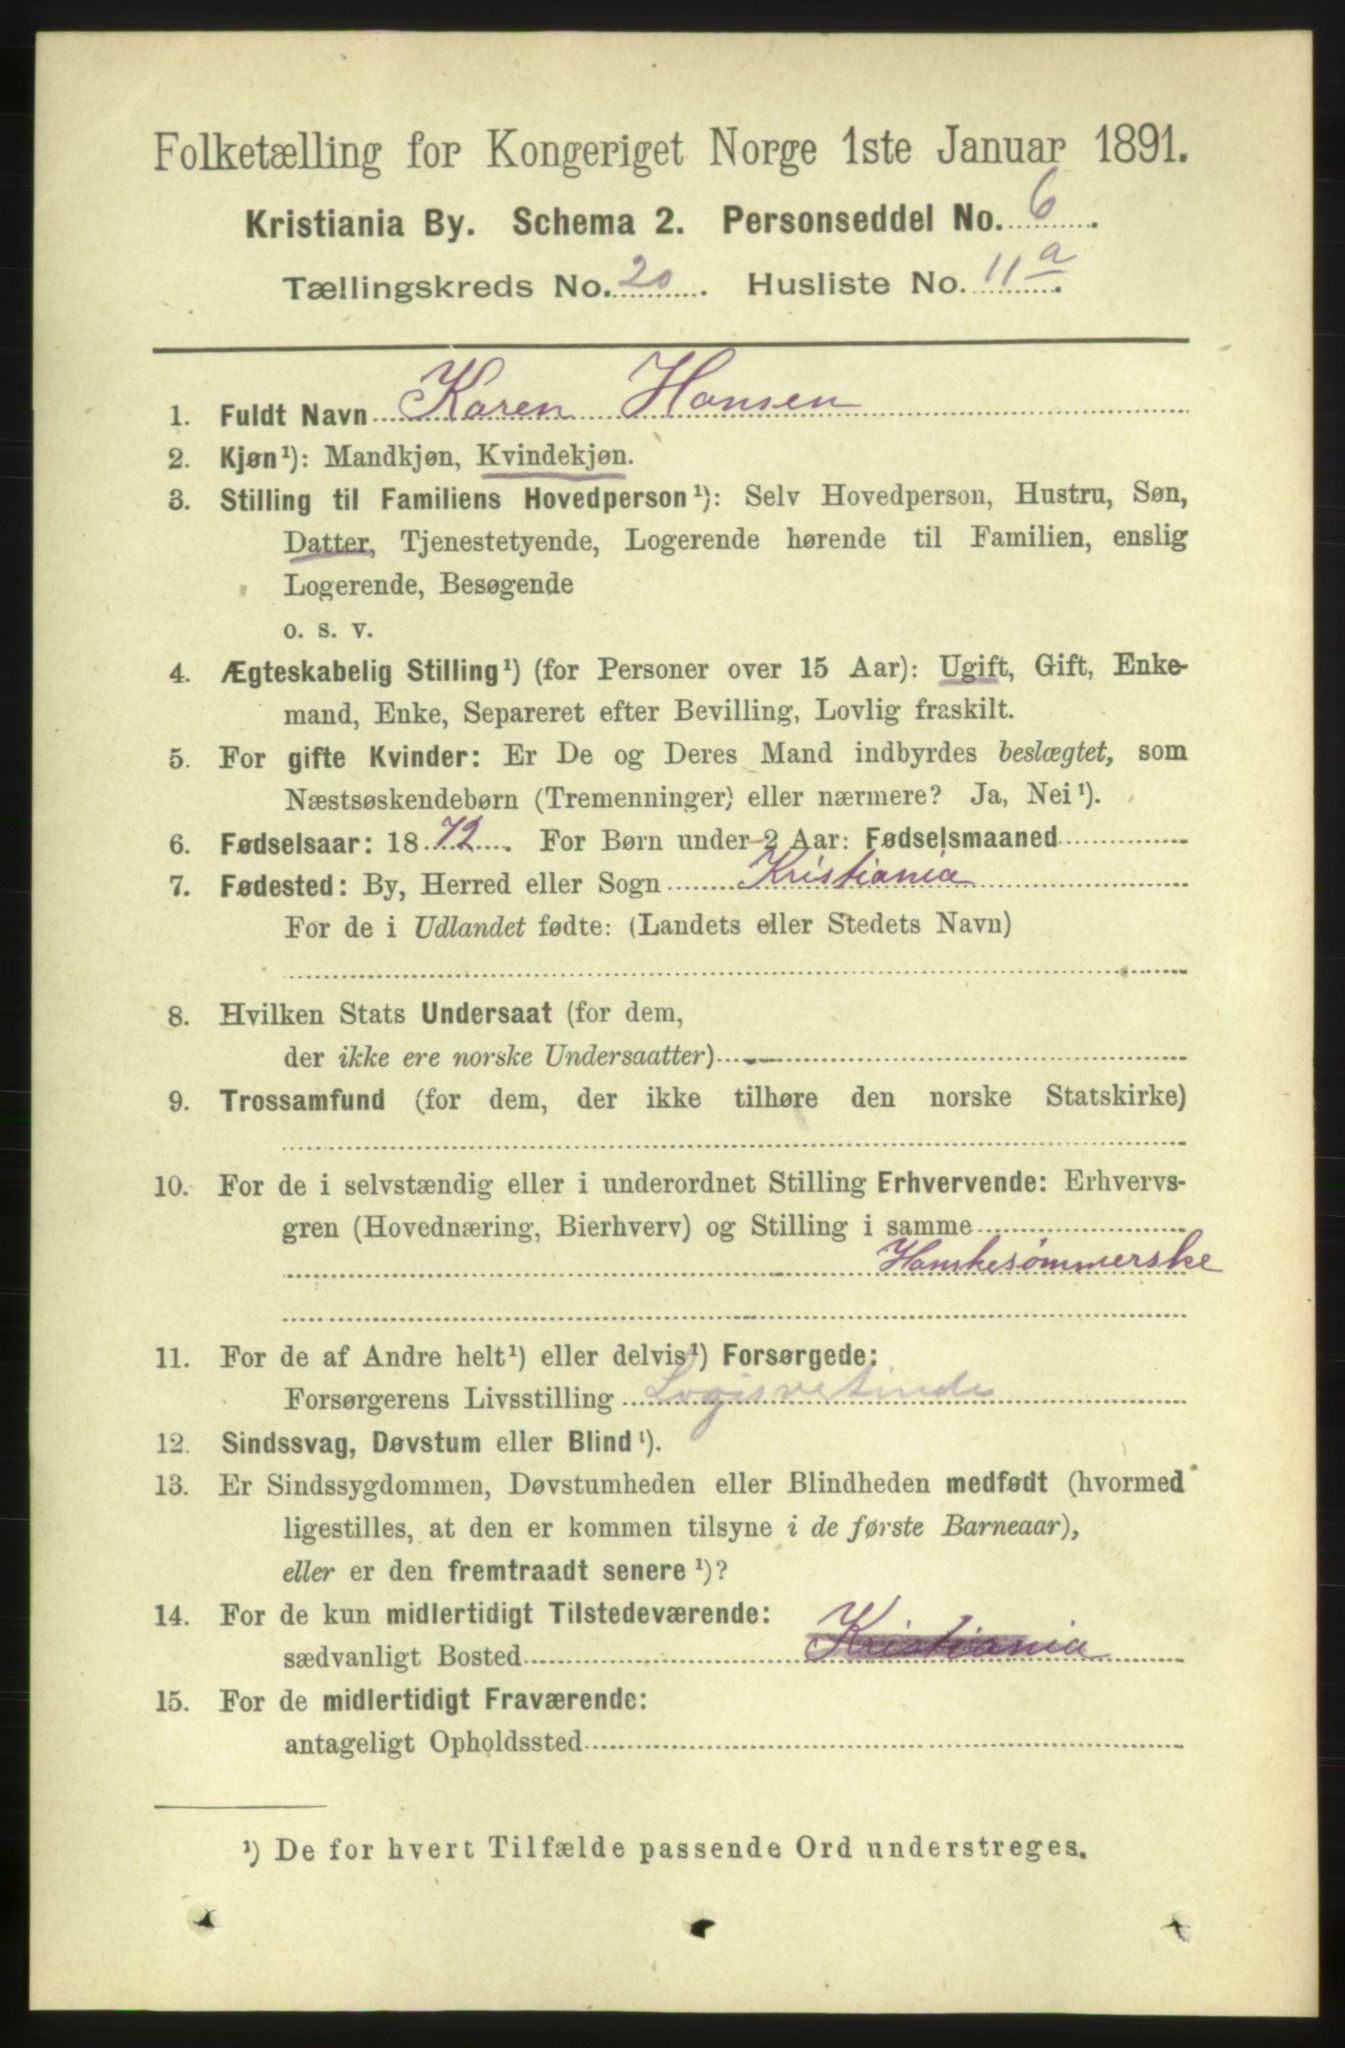 Folketælling for Kongeriget Norge 1ste Januar 1891.
Kristiania By. Schema 2. Personseddel No. 6.
Tællingskreds No. 20. Husliste No. 11 a.
1. Fuldt Navn Karen Hansen
2. Kjøn¹): Mandkjøn, Kvindekjøn.
3. Stilling til Familiens Hovedperson¹): Selv Hovedperson, Hustru, Søn,
Datter, Tjenestetyende, Logerende hørende til Familien, enslig
Logerende, Besøgende
o. s. v.
4. Ægteskabelig Stilling¹) (for Personer over 15 Aar): Ugift, Gift, Enke-
mand, Enke, Separeret efter Bevilling, Lovlig fraskilt.
5. For gifte Kvinder: Er De og Deres Mand indbyrdes beslægtet, som
Næstsøskendebørn (Tremenninger) eller nærmere? Ja, Nei¹).
6. Fødselsaar: 1872. For Børn under 2 Aar: Fødselsmaaned
7. Fødested: By, Herred eller Sogn Kristiania
For de i Udlandet fødte: (Landets eller Stedets Navn)
8. Hvilken Stats Undersaat (for dem,
der ikke ere norske Undersaatter)
9. Trossamfund (for dem, der ikke tilhøre den norske Statskirke)
10. For de i selvstændig eller i underordnet Stilling Erhvervende: Erhvervs-
gren (Hovednæring, Bierhverv) og Stilling i samme
Hanskesømmerske
11. For de af Andre helt¹) eller delvis¹) Forsørgede:
Forsørgerens Livsstilling Logisvertinde
12. Sindssvag, Døvstum eller Blind¹).
13. Er Sindssygdommen, Døvstumheden eller Blindheden medfødt (hvormed
ligestilles, at den er kommen tilsyne i de første Barneaar),
eller er den fremtraadt senere¹)?
14. For de kun midlertidigt Tilstedeværende:
sædvanligt Bosted Kristiania
15. For de midlertidigt Fraværende:
antageligt Opholdssted
¹) De for hvert Tilfælde passende Ord understreges.